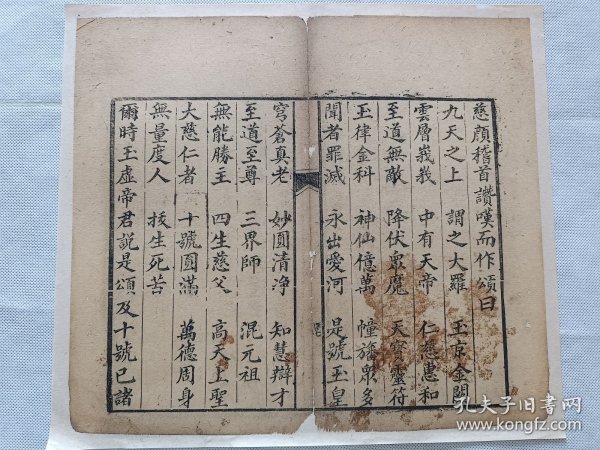 慈顏稽首讚嘆而作頌曰
九天之上　謂之大羅　玉京金闕
雲層峩峩　中有天帝　仁慈惠和
至道無敵　降伏眾魔　天寶靈符
玉律金科　神仙億萬　幢旛眾多
聞者罪滅　永出愛河　是號玉皇
穹蒼真老　妙圓清净　知慧辯才
至道至尊　三界師　混元祖
無能勝主　四生慈父　高天上聖
大慈仁者　十號圓滿　萬德周身
無量度人　拔生死苦
爾時玉虛帝君說是頌及十號已諸
孔夫子旧书网
www.kongfz.com